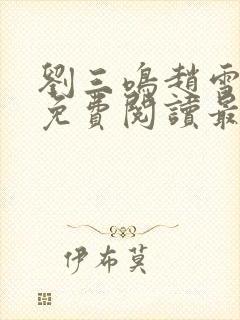 劉三鳴趙雪
免費閱讀最
伊布莫